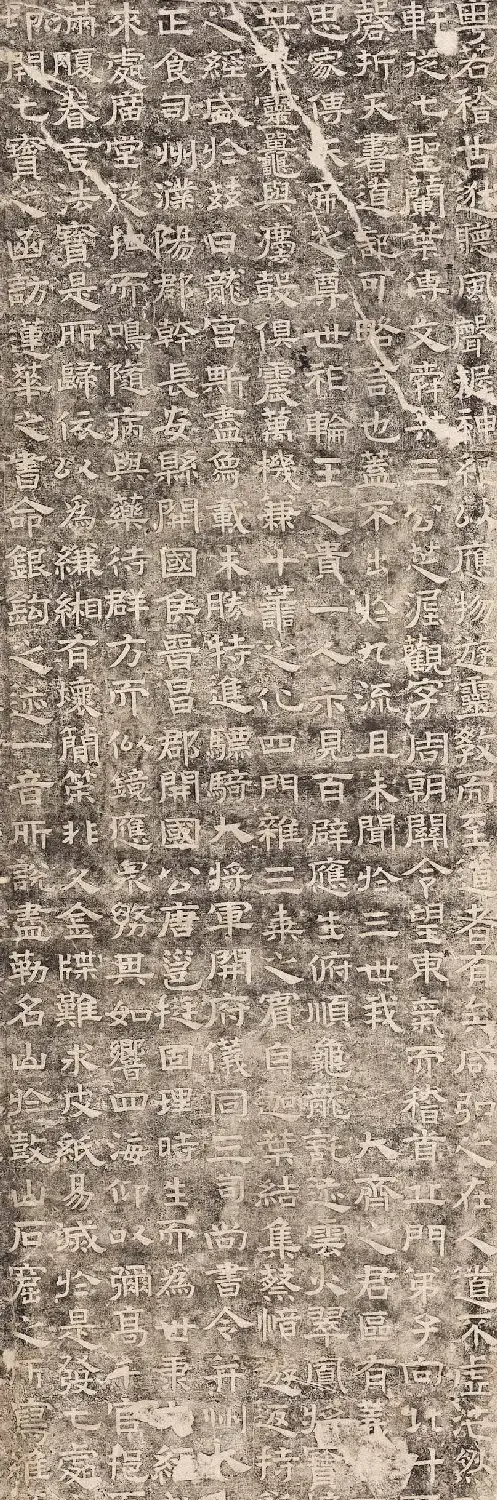 粵若稽古逖聽風聲握神紀以應物遊靈教而至道者有矣咸弘之在人道不虛行然
軒從七聖蘭葉傳文舜與三公芝泥觀字周朝關令望東氣而稽首孔門弟子向北斗
磬折天書道記可略言也蓋不出於九流且未聞於三世我大齊之君區有義
思家傳天帝之尊世祚輪王之貴一人示見百辟應生俯順龜龍託迹雲火翠鳳將寶
共靈鼉與鷹鼓俱震萬機兼十善之化四門雜三乘之賓自迦葉結集蔡愔遊返持
之經盛於茲日龍宮斯盡鳥載未勝特進驃騎大將軍開府儀同三司尚書令并州大
正食司州濮陽郡幹長安縣開國侯晉昌郡開國公唐邕挺固理時生而為世秉文經
來處廣堂從扣而鳴隨病與藥待群方而似鏡應眾務其如響四海仰以彌高千官挹
滿願眷言法寶是所歸依以為縑緗有壞簡策非久金牒難求皮紙易滅於是發七處
印開七寶之函訪蓮華之書命銀鉤之迹一音所說盡勒名山於鼓山石窟之所寫維